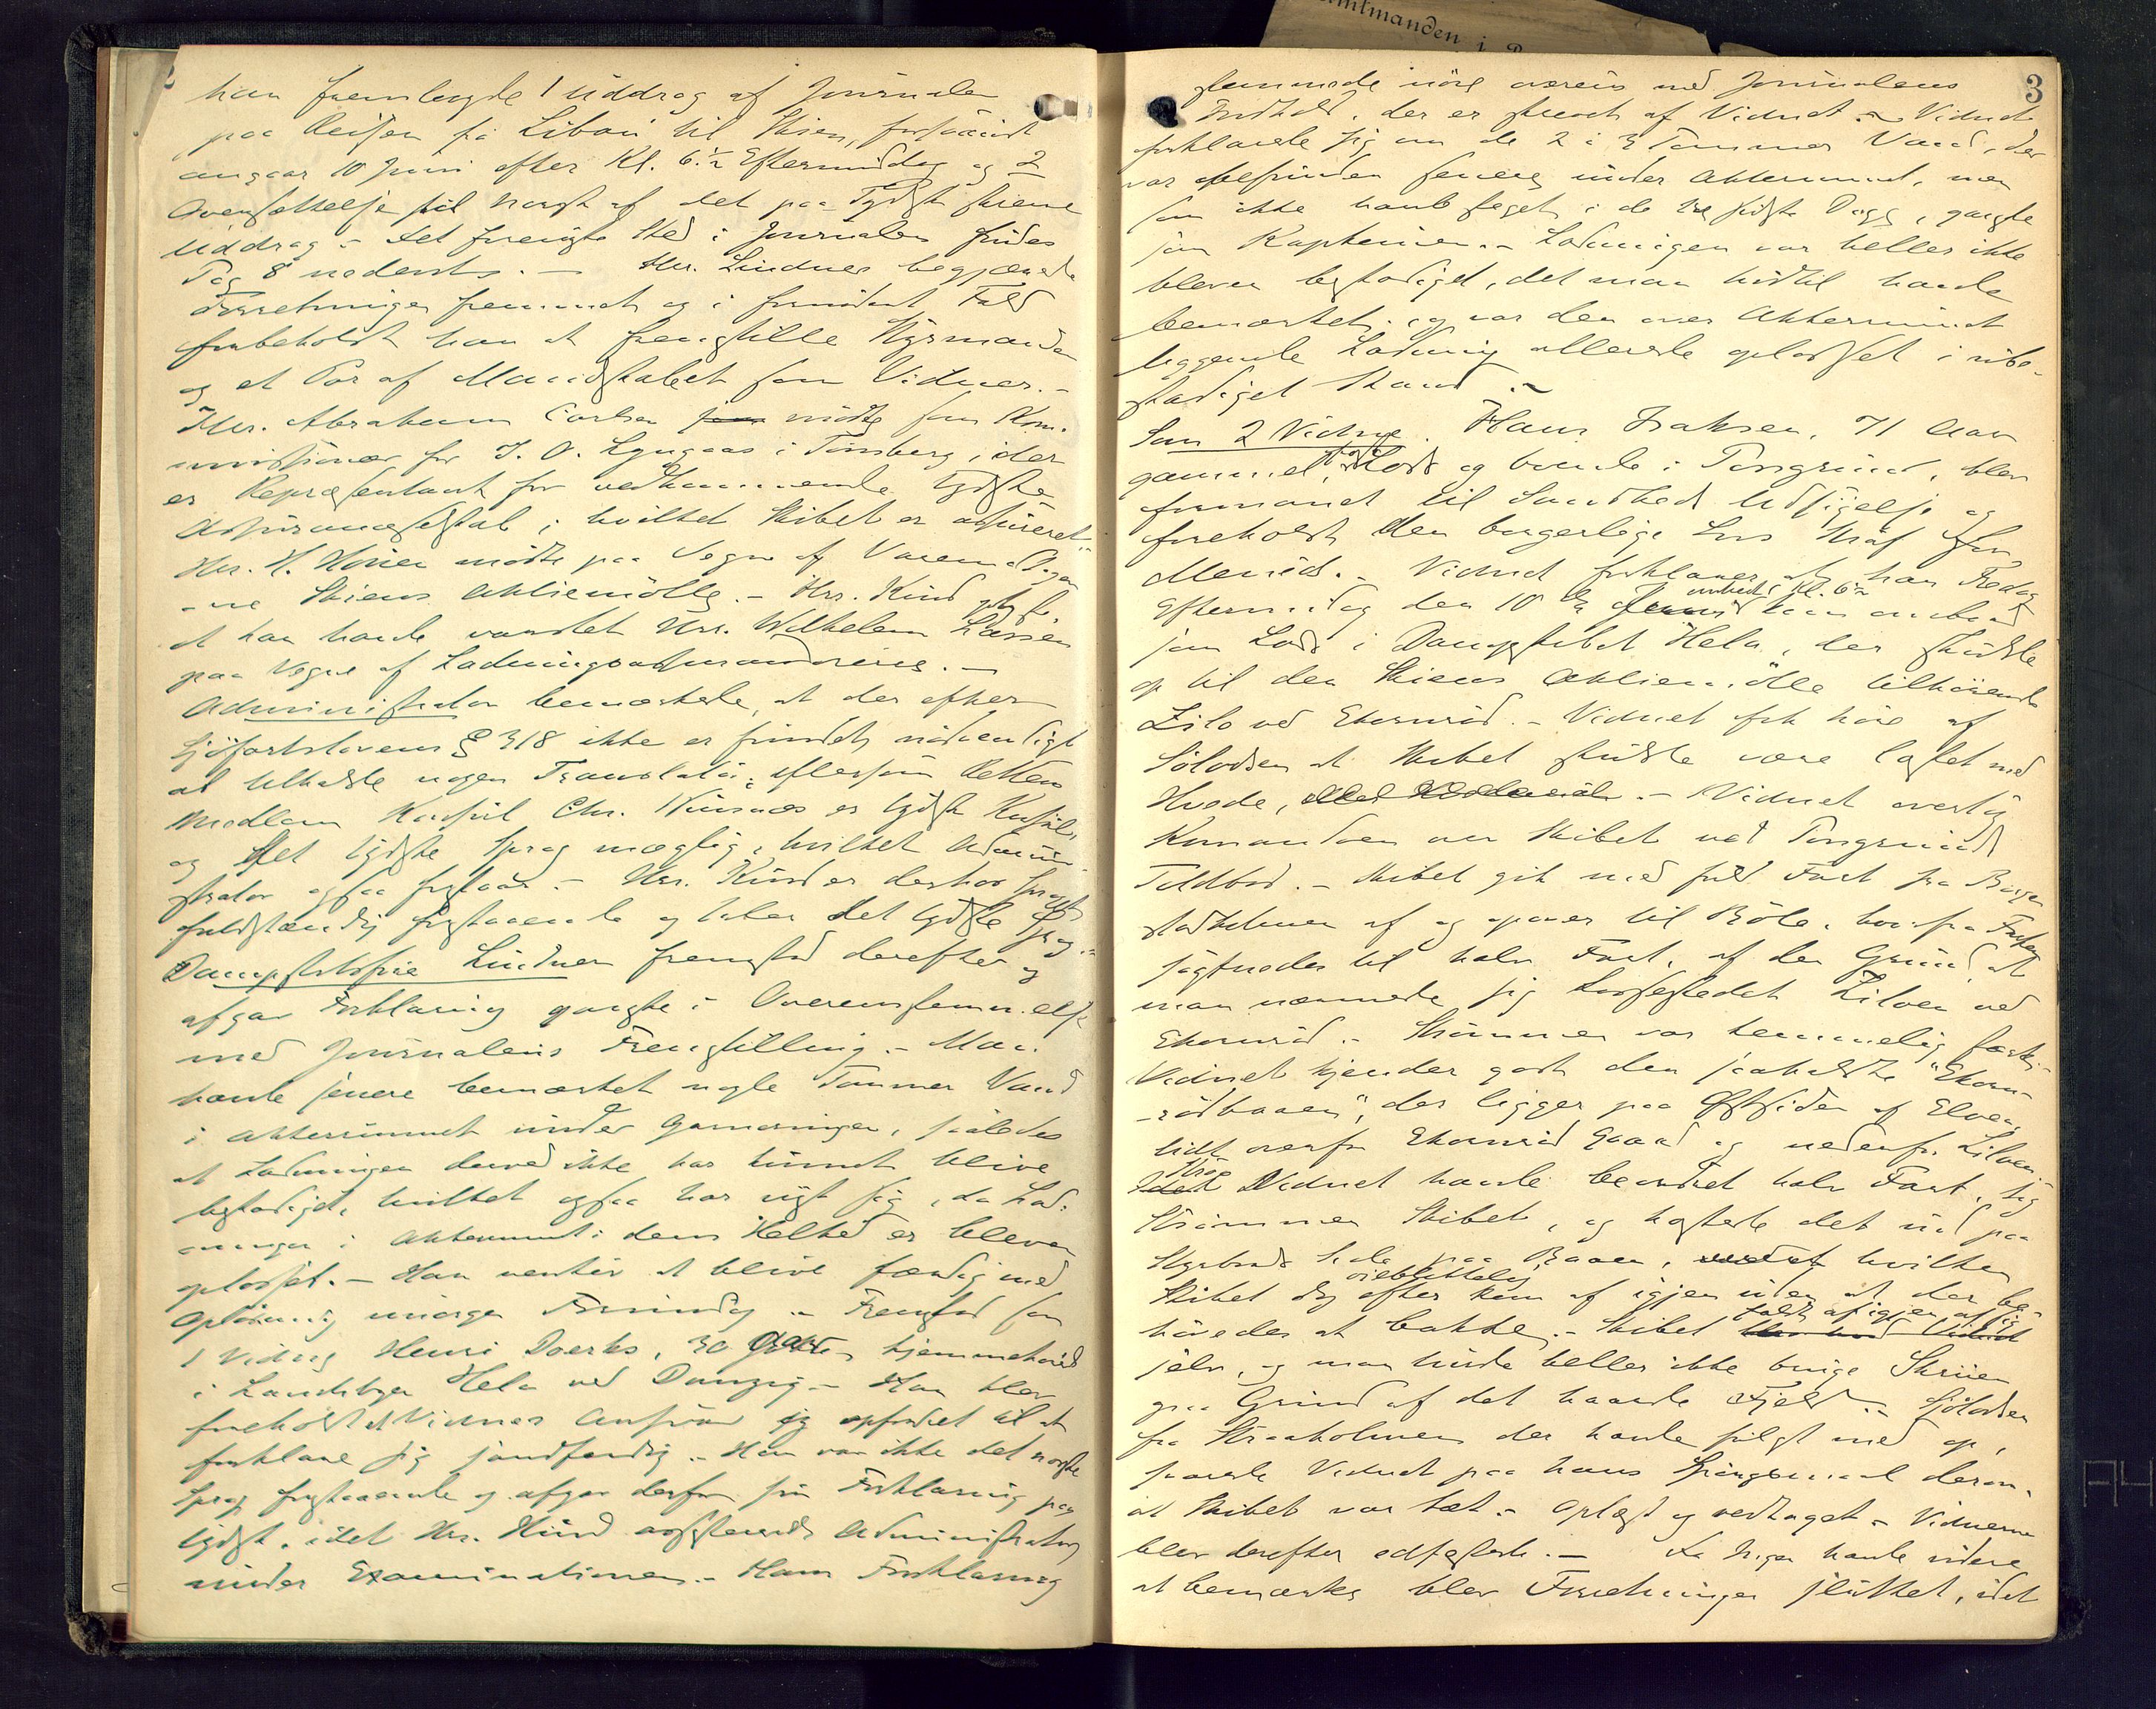 2
han fremlagde 1 Uddrag af Journalen
paa Reisen fra Libau til Skien, forsaavidt
angaar 10 Juni efter Kl. 6 ½ Eftermiddag og 2
Oversættelse til norsk af det paa Tydsk skrevne
Uddrag. – Det foreviste Sted i Journalen findes
Pag 8 nederst. – Hr. Lindner begjærede
Forretningen fremmet og i fornødent Fald
forbeholdt han at fremstille Styrmanden
og et Par af Mandskabet som Vidner. –
Hr. Abraham Carlsen mødte som Kom-
missionær for J. O. Lyngaas i Tønsberg, der
er Repræsentant for vedkommende tydske
Assuranceselskab, i hvilket Skibet er assureret. –
Hr. H. Høyer mødte paa Vegne af Varemodtager-
ne Skiens Aktiemølle. – Hr. Kund
at han havde varslet Hr. Wilhelm Larsen
paa Vegne af Ladningsassurandørerne. –
Administrator bemærkede, at der efter
Sjöfartslovens § 318 ikke er fundet nödvendigt
at tilkalde nogen Translatør, eftersom Rettens
Medlem Konsul Chr. Nursnæs er tydsk Konsul,
og det tydske Sprog mægtig, hvilket Admini-
strator ogsaa forstaar. – Hr. Kund er derhos Sproget
fuldstændig forstaaende og taler det tydske Sprog. –
Dampskibsfører Lindner fremstod derefter og
afgav Forklaring ganske i Overensstemmelse
med Journalens Fremstilling. – Man
havde senere bemærket nogle Tommer Vand
i Akterrummet under Garneringen, saaledes
at Ladningen derved ikke har kunnet blive
beskadiget, hvilket ogsaa har vist sig, da Lad-
ningen i Akterrummet i dens Helhed er bleven
oplosset. – Han venter at blive færdig med
Oplosning imorgen Formiddag. – Fremstod som
1 Vidne Henri Doerks, 30 Aar, hjemmehørende
i Landsbyen Hela ved Danzig. – Han blev
foreholdt et Vidnes Ansvar og opfordret til at
forklare sig sandfærdig. – Han var ikke det norske
Sprog forstaaende og afgav derfor sin Forklaring paa
tydsk, idet Hr. Kund assisterede Administrator
under Examinationen. – Hans Forklaring
3
stemmede nöie overens med Journalens
Indhold, der er skrevet af Vidnet. – Vidnet
forklarede sig om de 2 à 3 Tommer Vand, der
var befunden senere under Akterrummet, men
som ikke havde steget i de tre sidste Dage, ganske
som Kapteinen. – Ladningen var heller ikke
bleven beskadiget, det man hidtil havde
bemærket, og var den over Akterrummet
liggende Ladning allerede oplosset i ube-
skadiget Stand. –
Som 2 Vidne. Hans Isaksen, 71 Aar
gammel, Lods og boende i Porsgrund, blev
formanet til Sandheds Udsigelse og
foreholdt den borgerlige Lovs Straf for
Mened. – Vidnet forklarer at han Fredag
Eftermiddag den 10 ds omtrent Kl. 6 ½ kom ombord
som Lods i Dampskibet Hela, der skulde
op til den Skiens Aktiemölle tilhørende
Zilo ved Ekornrød. – Vidnet fik höre af
Sölodsen at Skibet skulde være lastet med
Hvede. – Vidnet overtog
Kommandoen over Skibet ved Porsgrunds
Toldbod. – Skibet gik med fuld Fart fra Borge-
stadholmen af og opover til Böle, hvorfra Farten
sagtnedes til halv Fart, af den Grund at
man nærmede sig Lossestedet Ziloen ved
Ekornrød. – Strømmen var temmelig stærk. –
Vidnet kjender godt den saakaldte "Ekorn-
rødbaaen", der ligger paa Østsiden af Elven
lidt ovenfor Ekornrød Gaard og nedenfor Ziloen.
Strax Vidnet havde beordret halv Fart, tog
Strömmen Skibet, og kastede det ind paa
Styrbords Side paa Baaen, hvilken
Skibet dog efter øieblikkelig kom af igjen uden at der be-
hövedes at bakke. – Skibet faldt af igjen af sig
selv, og man kunde heller ikke bruge Skruen
paa Grund af det haarde Fjeld. – Sjölodsen
fra Straaholmen der havde fulgt med op,
svarede Vidnet paa hans Spörgsmaal derom,
at Skibet var tæt. – Oplæst og vedtaget. – Vidnerne
blev derefter edfæstede. – Da Ingen havde videre
at bemærke blev Forretningen sluttet, idet